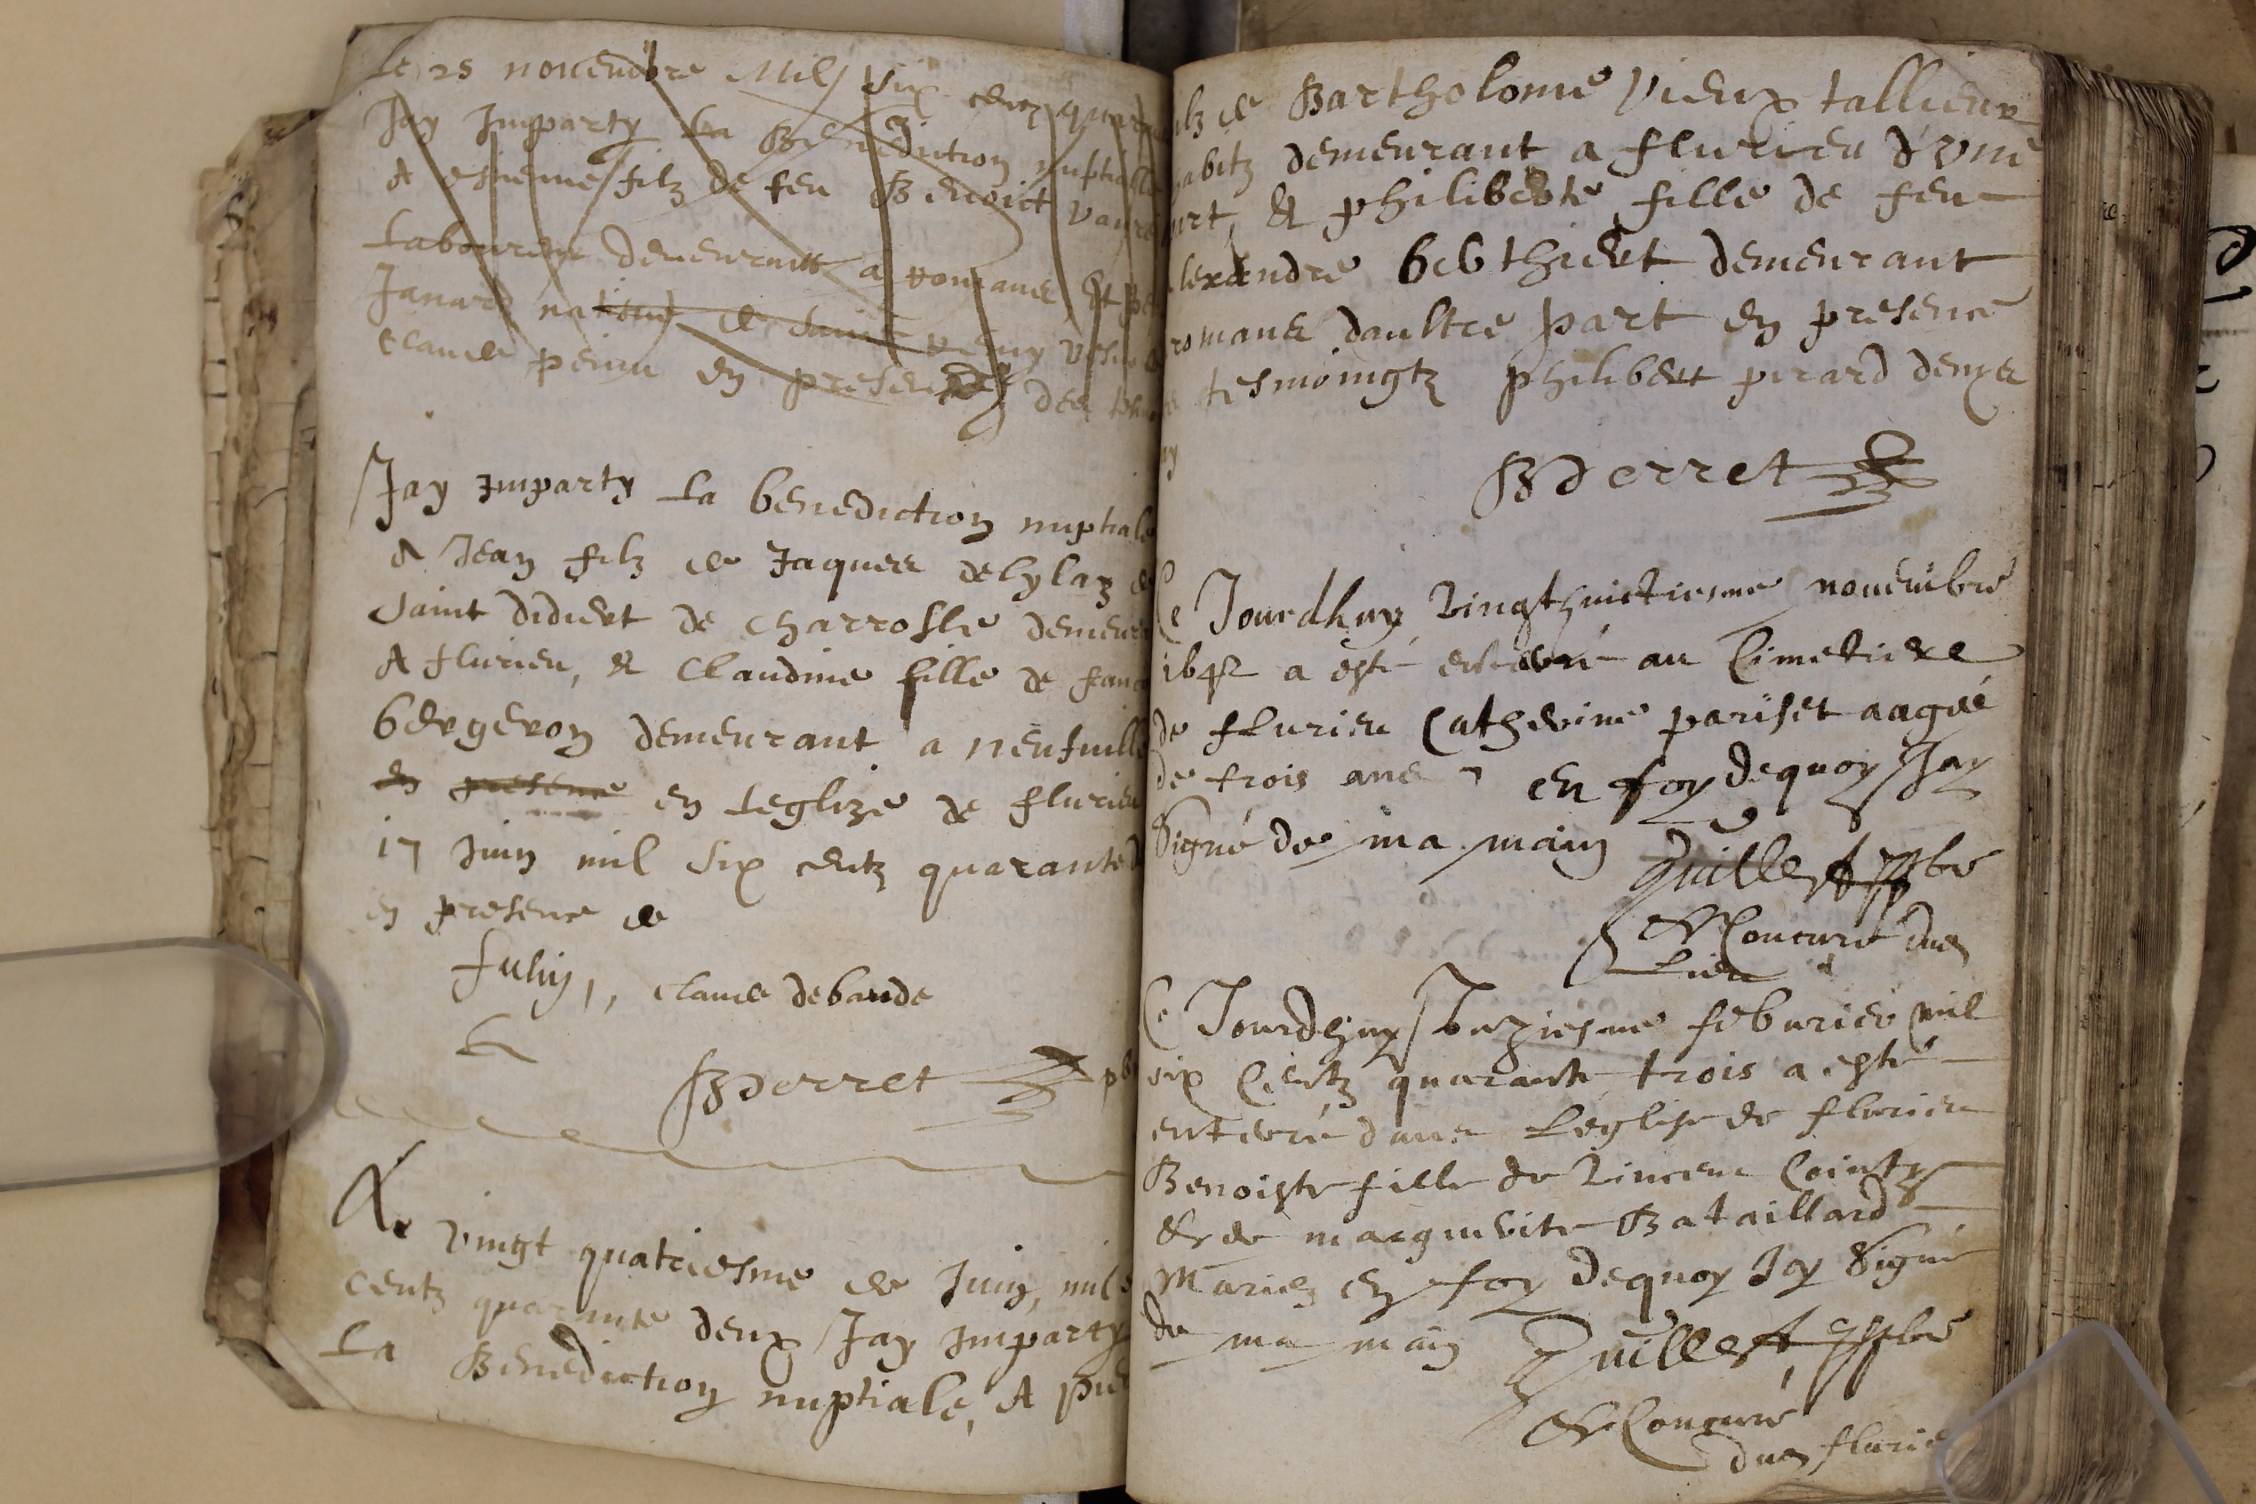 Le 25 novembre Mil Six centz quara
Jay Imparty La Benediction nuptialle
A esneme filz de feu Benoict
Laboureur demeurant a romans Et
Janard
Claude en presence des
Jay Imparty La benediction nuptiale
A Jean filz de Jaques delylaz de
Saint didiert de Charrosle demeur
A flurieu, & Claudine fille de franc
bergeron demeurant a neufuille
en presence en Leglize de flurieu
17 Juin mil Six centz quarante d
en presence de
fuhy,, claude debande
BPerret pb
Le vingt quatriesme de Juin, mil s
centz quarante deux Jay Imparty
La Benediction nuptiale, A pie
ilz de Bartholome Vieux tallieur
habitz demeurant a flurieu d'vne
part, & philiberte fille de feu
lexandre berthiert demeurant
romans daultre part en presence
tesmoingtz philibert perard denys
BPerret
Ce Jourdhuy Vingthuictiesme nouembre
1642 a esté enterré au Cimetiere
de flurieu Catherine pariset aagée
de trois ans en foy dequoy Jay
Signé de ma main Quillet pbre
& Concuré dud
Lieu
Ce Jourdhuy feburier mil
six Centz quarante trois a esté
enterré dans Leglise de flurieu
Benoiste fille de Vincent Cointy
& de marguerite Bataillard
Mariez en foy dequoy Jay Signé
de ma main Quillet, pbre
& Concuré
dud flurie